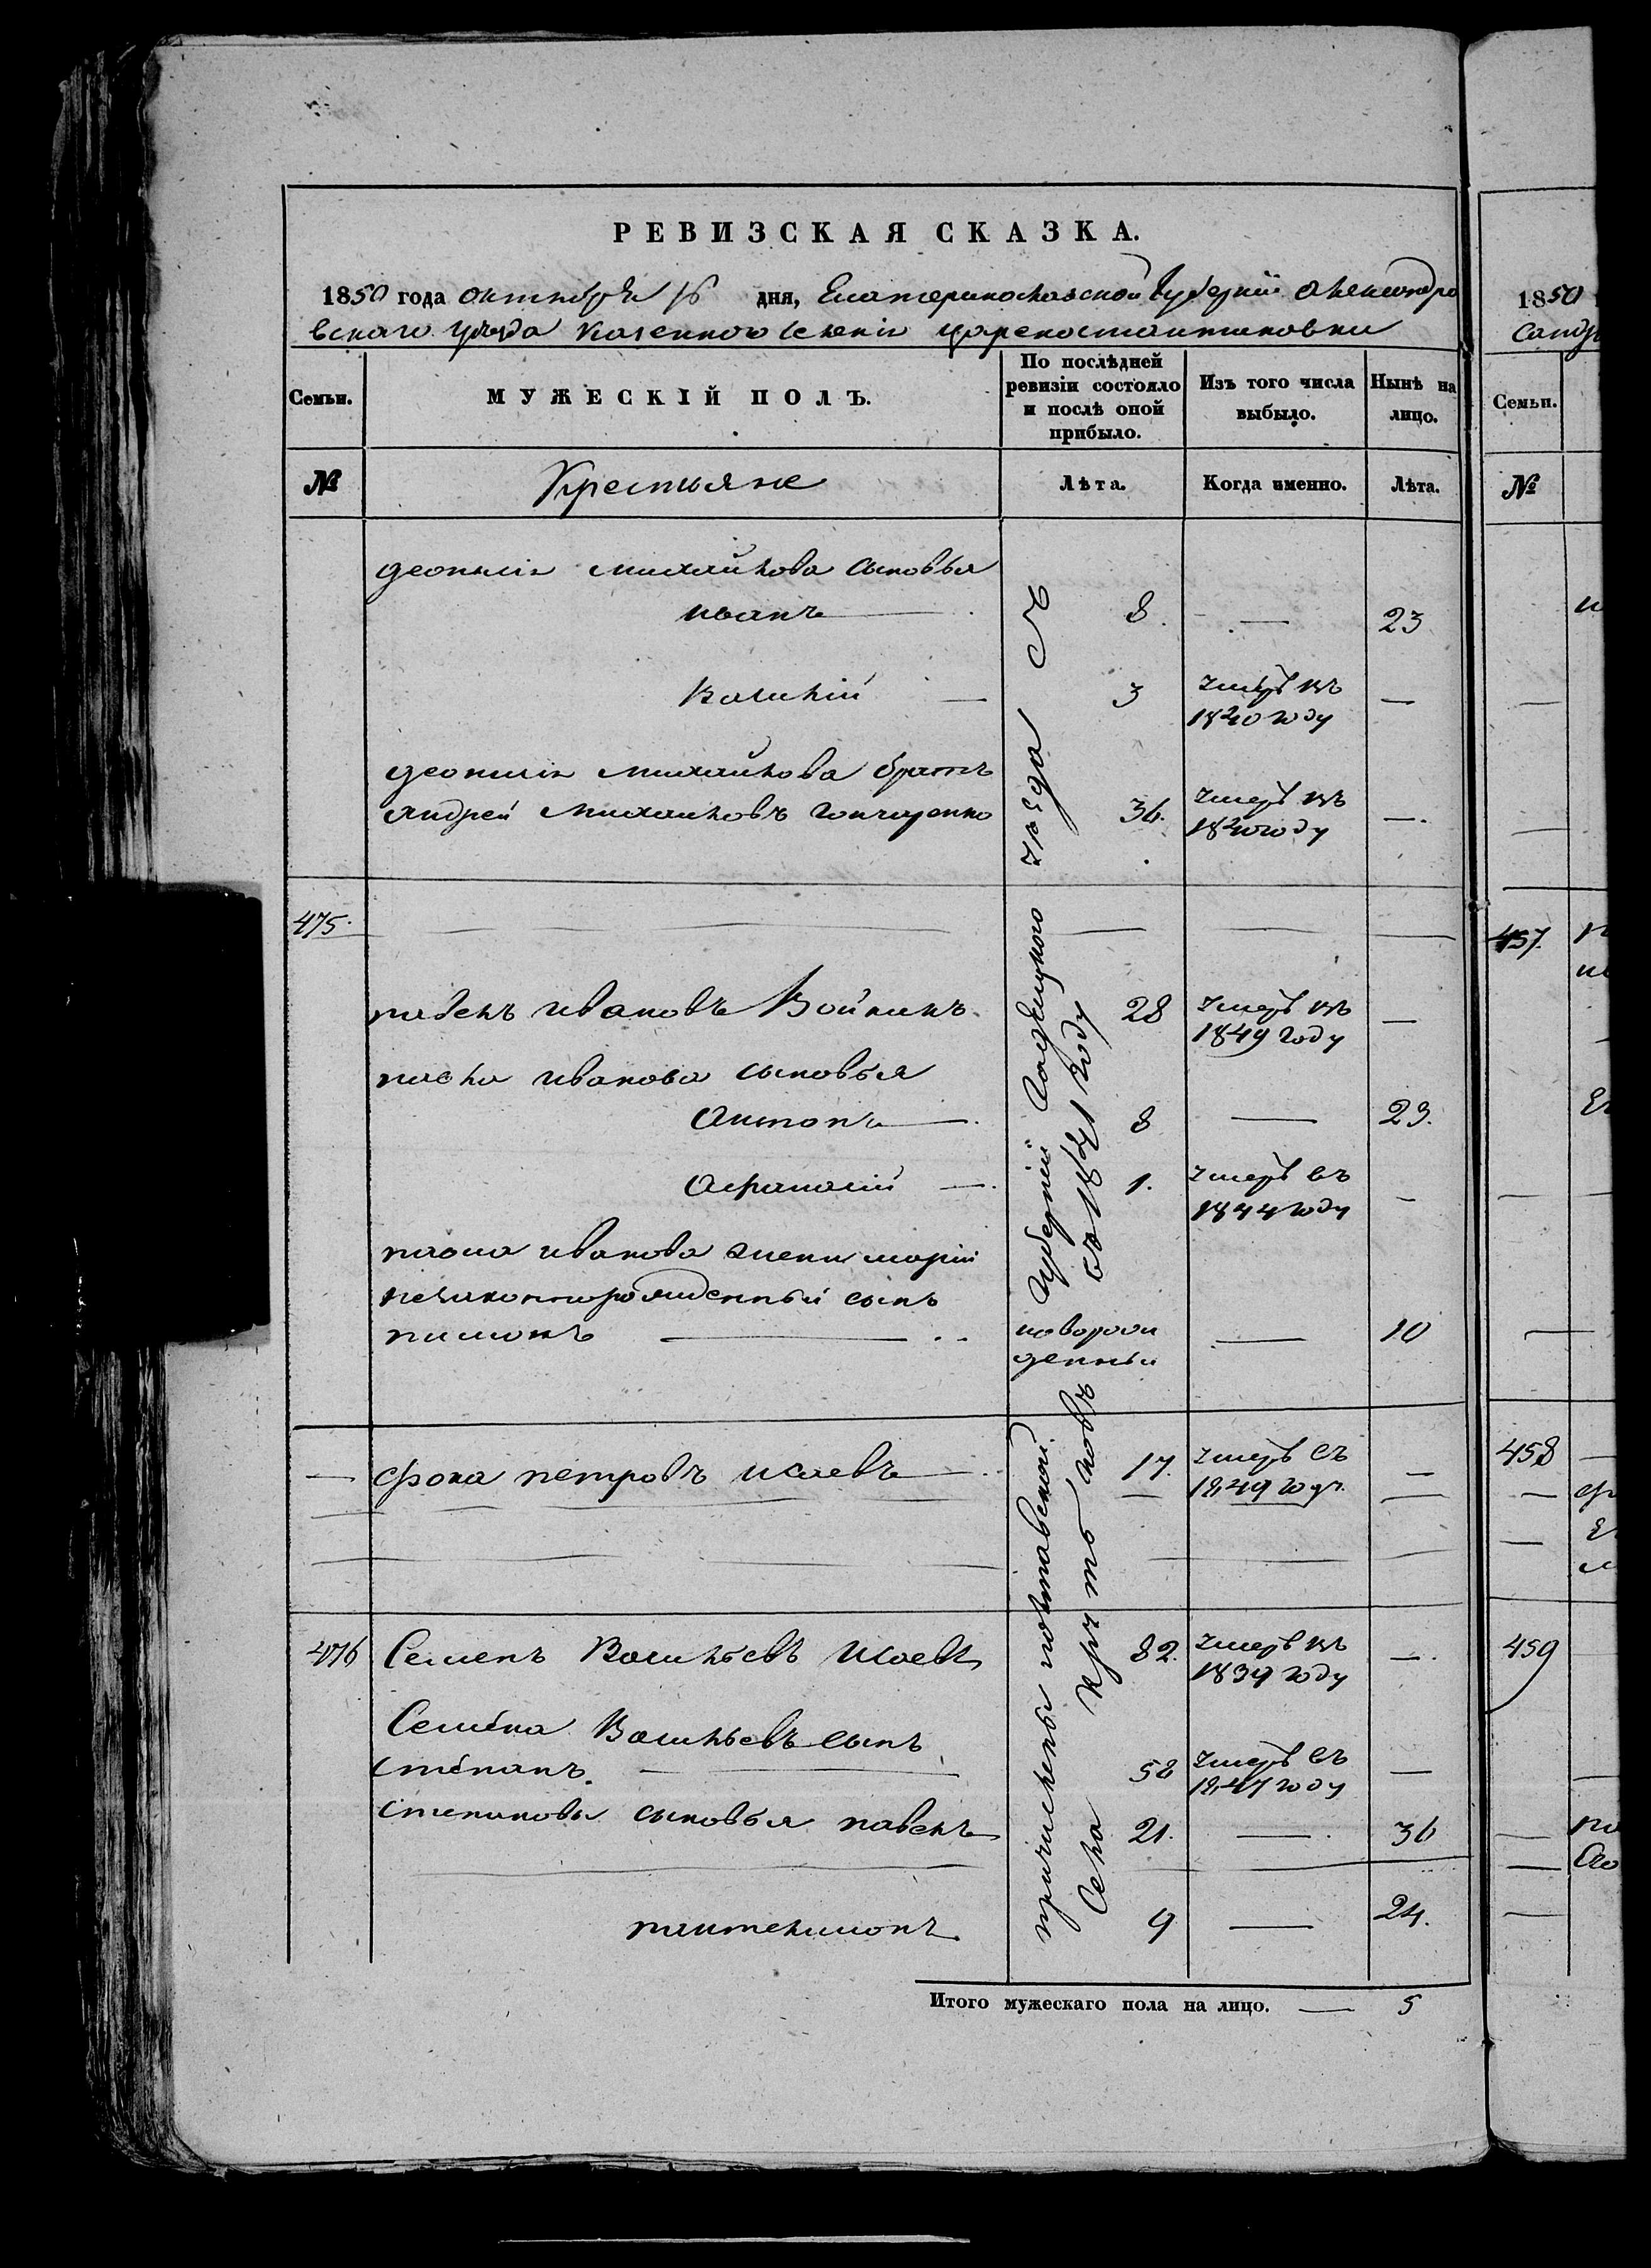 РЕВИЗСКАЯ СКАЗКА.
1850 года октября 16 дня, Екатеринославской Губерніи Александро
вскаго уѣзда Казенного селенія Цареконстантиновки
Семьи.
МУЖЕСКІЙ ПОЛЪ.
По послѣдней ревизіи состояло и послѣ оной прибыло.
Изъ того числа выбыло.
Нынѣ на лицо.
№
Крестьяне
Лѣта.
Когда именно.
Лѣта.
Михайлова сыновья
иванъ 8. — 23
Василій — 3 умеръ въ
1840 году —
Михайлова братъ
андрей Михайловъ гончаренко 36. умеръ въ
1840 году —
475.
павелъ ивановъ Войникъ 28 умеръ въ
1849 году —
павла иванова сыновья
Антонъ — 8 — 23.
Афанасій — 1. умеръ въ
1844 году —
павла иванова жены маріи
незаконнорожденный сынъ
пименъ — новорож
денный — 10
— фока петровъ исаевъ — 17. умеръ въ
1849 году —
476 Семенъ Васильевъ исаевъ 82. умеръ въ
1839 году —
Семена Васильевъ сынъ
степанъ — 58 умеръ въ
1847 году —
степановы сыновья павелъ 21. — 36
пантелимонъ 9 — 24.
причислены полтавской Губерніи Гадяцкого уѣзда съ
села въ 1841 году
Итого мужескаго пола на лицо. — 5
1850
санд
Семьи.
№
457.
458
459